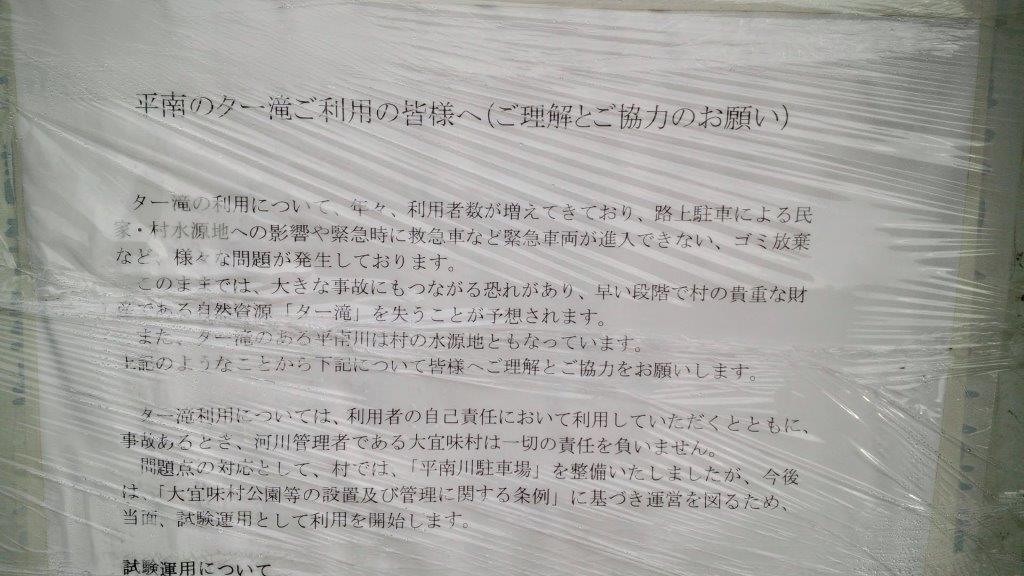 平南のター滝ご利用の皆様へ(ご理解とご協力のお願い)
ター滝の利用について、年々、利用者数が増えてきており、路上駐車による民
家・村水源地への影響や緊急時に救急車など緊急車両が進入できない、ゴミ放棄
など、様々な問題が発生しております。
このままでは、大きな事故にもつながる恐れがあり、早い段階で村の貴重な財
産である自然資源「ター滝」を失うことが予想されます。
また、ター滝のある平南川は村の水源地ともなっています。
上記のようなことから下記について皆様へご理解とご協力をお願いします。
ター滝利用については、利用者の自己責任において利用していただくとともに、
事故あるとき、河川管理者である大宜味村は一切の責任を負いません。
問題点の対応として、村では、「平南川駐車場」を整備いたしましたが、今後
は、「大宜味村公園等の設置及び管理に関する条例」に基づき運営を図るため、
当面、試験運用として利用を開始します。
試験運用について